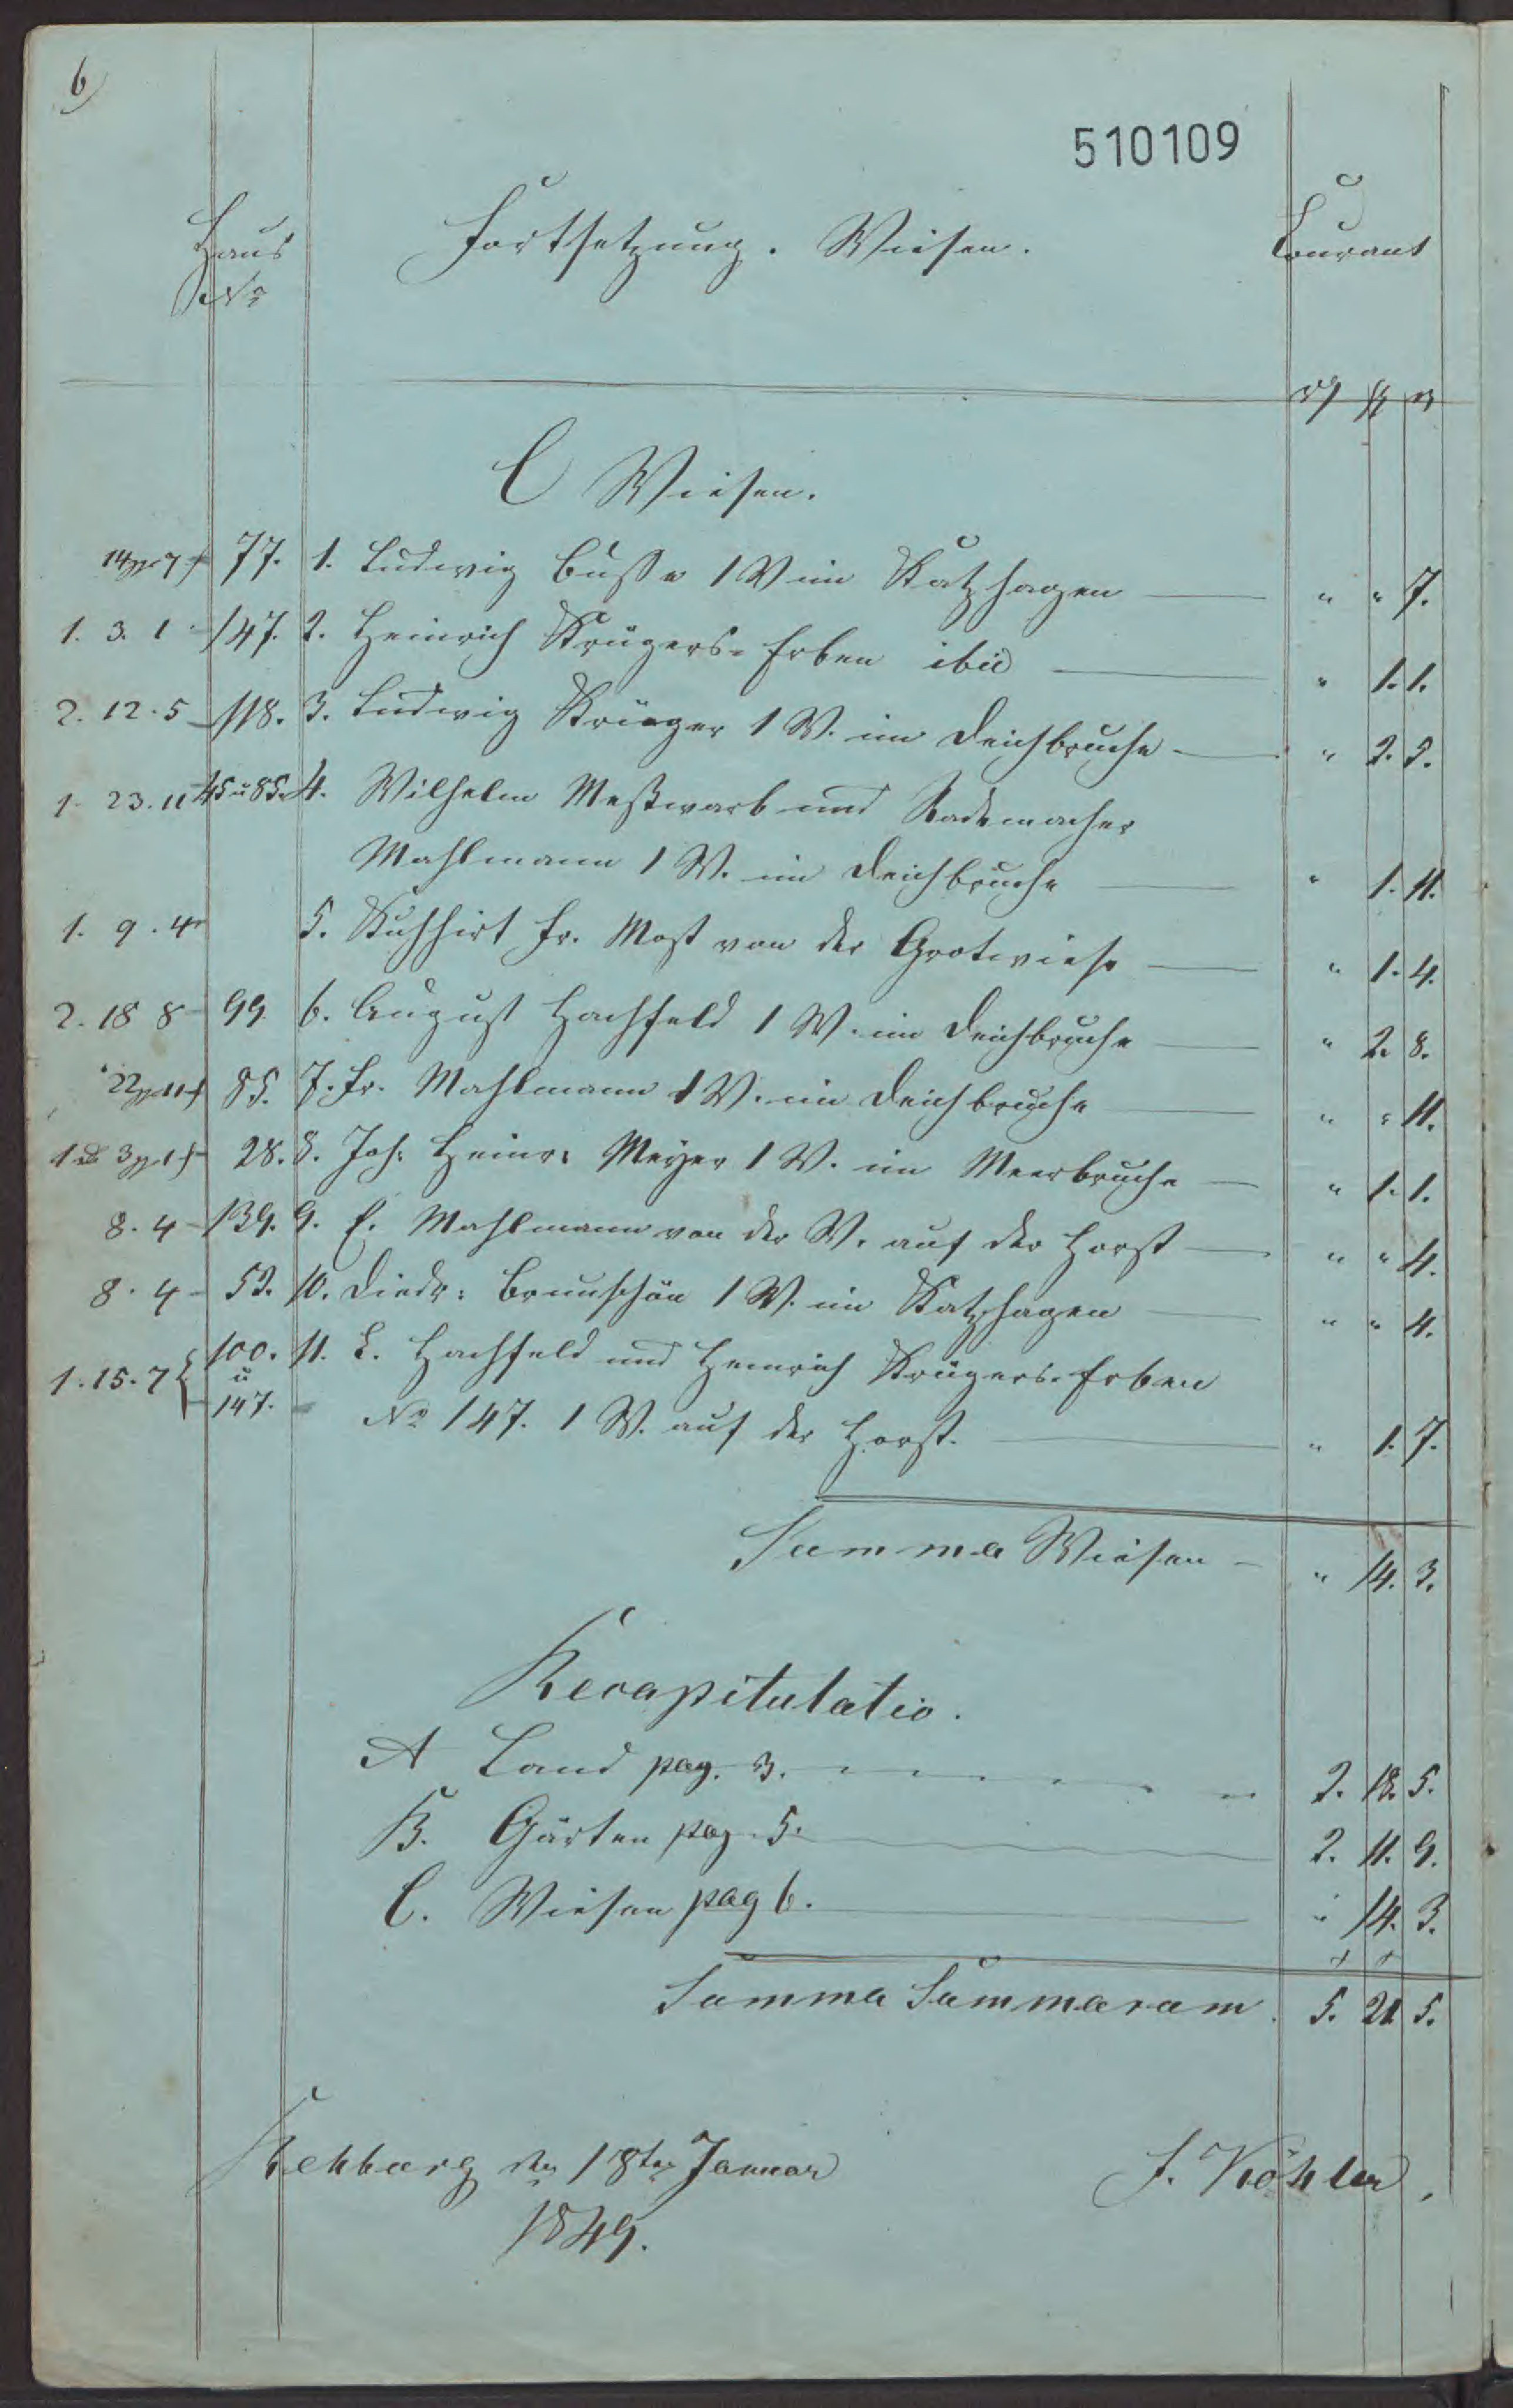 6
510109
Haus Fortsetzung. Wiesen. Courant
No
C Wiesen.
77. 1. Ludwig Busse 1 W im Katzhagen — " " 7.
1. 3. 1 147. 2. Heinrich Krügers-Erben ibid — " 1. 1.
2. 12. 5 118. 3. Ludwig Krüger 1 W. im Deichbruche — " 2. 5.
1. 23. 11 45 u 85. 4. Wilhelm Meßwarb und Rademacher
Mahlmann 1 W. im Deichbruche — " 1. 11.
1. 9. 4 5. Kuhhirt Fr. Most von der Grotwiese — " 1. 4.
2. 18 8 99 6. August Hachfeld 1 W. im Deichbruche — " 2. 8.
85. 7. Fr. Mahlmann 1 W. im Deichbruche — " " 11.
28. 8. Joh: Heinr: Meyer 1 W. im Meerbruche — " 1. 1.
8. 4 139. 9. E. Mahlmann von der W. auf der Horst — " " 4.
8. 4 52. 10. Diedr: Brunschön 1 W. im Katzhagen — " " 4.
1. 15. 7 100. 11. L. Hachfeld und Heinrich Krügers-Erben
u
147. No 147. 1 W. auf der Horst. — " 1. 7.
Summa Wiesen — " 14. 3.
Recapitulatio.
A Land pag. 3. 2. 18. 5.
B. Gärten pag. 5. 2. 11. 9.
C. Wiesen pag 6. " 14. 3.
Summa Summarum. 5. 21 5.
Rehburg den 18ten Januar F. Köhler.
1849.